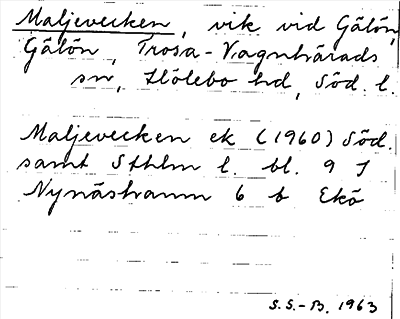 Maljevecken, vik vid Gälön,
Gälön, Trosa-Vagnhärads
sn, Hölebo hd, Söd. l.
Maljevecken ek (1960) Söd.
samt Sthlm l. bl. 9 J
Nynäshamn 6 b Ekö
S.S.-B. 1963